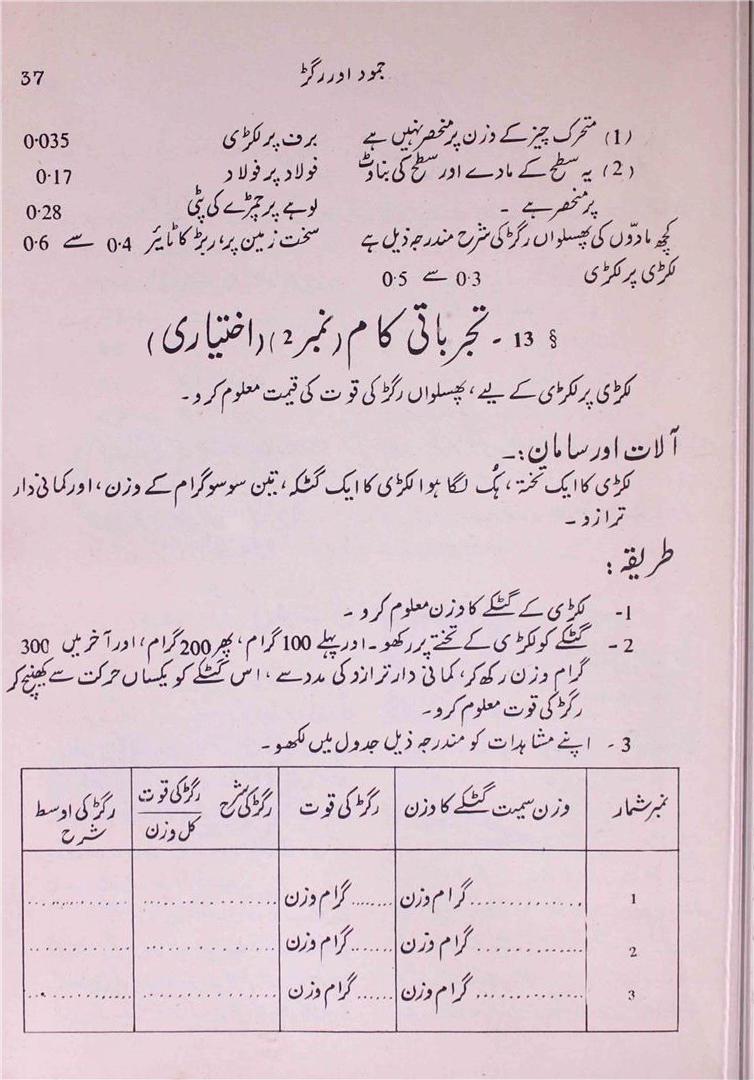 جمود اور رگڑ
37
(1) متحرک چیز کے وزن پر منحصر نہیں ہے
(2) یہ سطح کے مادے اور سطح کی بناوٹ
پر منحصر ہے ۔
کچھ مادّوں کی پھسلواں رگڑ کی شرح مندرجہ ذیل ہے
لکڑی پر لکڑی 0·3 سے 0·5
برف پر لکڑی 0·035
فولاد پر فولاد 0·17
لوہے پر چمڑے کی پٹی 0·28
سخت زمین پر، ربڑ کا ٹائیر 0·4 سے 0·6
§ 13 ۔ تجرباتی کام (نمبر 2) (اختیاری)
لکڑی پر لکڑی کے لیے، پھسلواں رگڑ کی قوت کی قیمت معلوم کرو ۔
آلات اور سامان :۔
لکڑی کا ایک تختہ، ہُک لگا ہوا لکڑی کا ایک گٹکہ، تین سو سو گرام کے وزن، اور کمانی دار
ترازو ۔
طریقہ :
1- لکڑی کے گٹکے کا وزن معلوم کرو ۔
2- گٹکے کو لکڑی کے تختے پر رکھو ۔ اور پہلے 100 گرام، پھر 200 گرام، اور آخر میں 300
گرام وزن رکھ کر، کمانی دار ترازو کی مدد سے، اس گٹکے کو یکساں حرکت سے کھینچ کر
رگڑ کی قوت معلوم کرو ۔
3- اپنے مشاہدات کو مندرجہ ذیل جدول میں لکھو ۔
نمبر شمار | وزن سمیت گٹکے کا وزن | رگڑ کی قوت | رگڑ کی شرح رگڑ کی قوت / کل وزن | رگڑ کی اوسط شرح
1 | ............ گرام وزن | ....... گرام وزن | ............ | ............
2 | ............ گرام وزن | ....... گرام وزن | ............ | ............
3 | ............ گرام وزن | ....... گرام وزن | ............ | ............